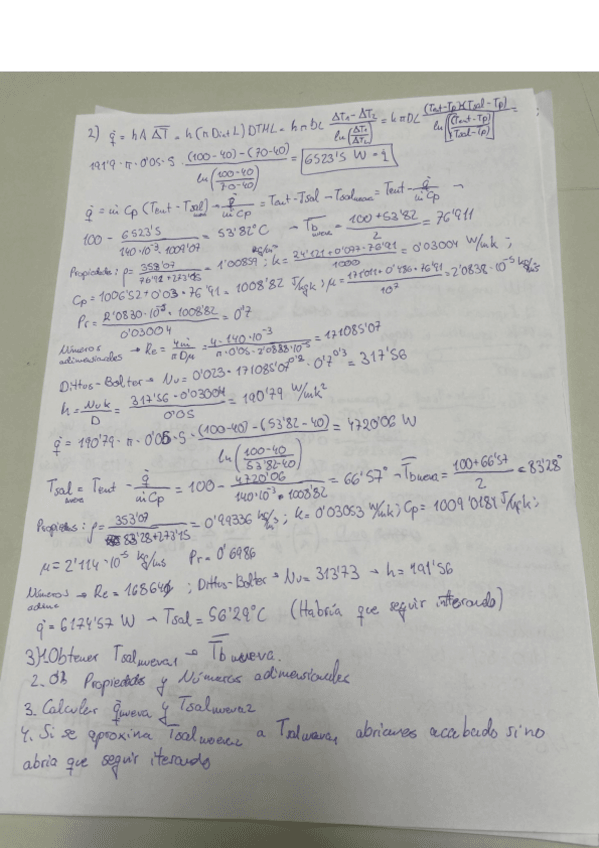 2) q̇ = h A ΔT̅ = h (π Dint L) DTML = h π D L (ΔT₁ - ΔT₂)/ln(ΔT₁/ΔT₂) = h π D L ((Tent - Tp) - (Tsal - Tp))/ln[(Tent - Tp)/(Tsal - Tp)] =
191'9 · π · 0'05 · 5 · ((100-40) - (70-40))/ln((100-40)/(70-40)) = 6523'5 W = q̇
q̇ = ṁ Cp (Tent - Tsal) → q̇/(ṁ Cp) = Tent - Tsal → Tsal nueva = Tent - q̇/(ṁ Cp) →
100 - 6523'5/(140·10⁻³ · 1009'07) = 53'82°C → T̅b nueva = (100 + 53'82)/2 = 76'911
Propiedades: ρ = 353'07/(76'91 + 273'15) = 1'00859 kg/m³; k = (24'121 + 0'077 · 76'91)/1000 = 0'03004 W/mk;
Cp = 1006'52 + 0'03 · 76'91 = 1008'82 J/kg k; μ = /10⁷ = 2'0838 · 10⁻⁵ kg/ms
Pr = (2'0830 · 10⁻⁵ · 1008'82)/0'03004 = 0'7
Números adimensionales → Re = 4ṁ/(π D μ) = (4 · 140·10⁻³)/(π · 0'05 · 2'0838·10⁻⁵) = 171085'07
Dittus-Bolter → Nu = 0'023 · 171085'07^0'8 · 0'7^0'3 = 317'56
h = Nu k/D = (317'56 · 0'03004)/0'05 = 190'79 W/mk²
q̇ = 190'79 · π · 0'05 · 5 · ((100-40) - (53'82-40))/ln((100-40)/(53'82-40)) = 4720'06 W
Tsal nueva = Tent - q̇/(ṁ Cp) = 100 - 4720'06/(140·10⁻³ · 1008'82) = 66'57° → T̅b nueva = (100 + 66'57)/2 = 83'28°
Propiedades: ρ = 353'07/(83'28 + 273'15) = 0'99336 kg/m³; k = 0'03053 W/mk; Cp = 1009'0181 J/kg k;
μ = 2'114 · 10⁻⁵ kg/ms Pr = 0'6986
Números adime → Re = ; Dittus-Bolter → Nu = 313'73 → h = 191'56
q̇ = 6174'57 W → Tsal = 56'29°C (Habría que seguir iterando)
3) 1. Obtener Tsal nueva → T̅b nueva.
2. Propiedades y Números adimensionales
3. Calcular q̇ nueva y Tsal nueva2
4. Si se aproxima Tsal nueva2 a Tsal nueva, abriamos acabado sino
abria que seguir iterando